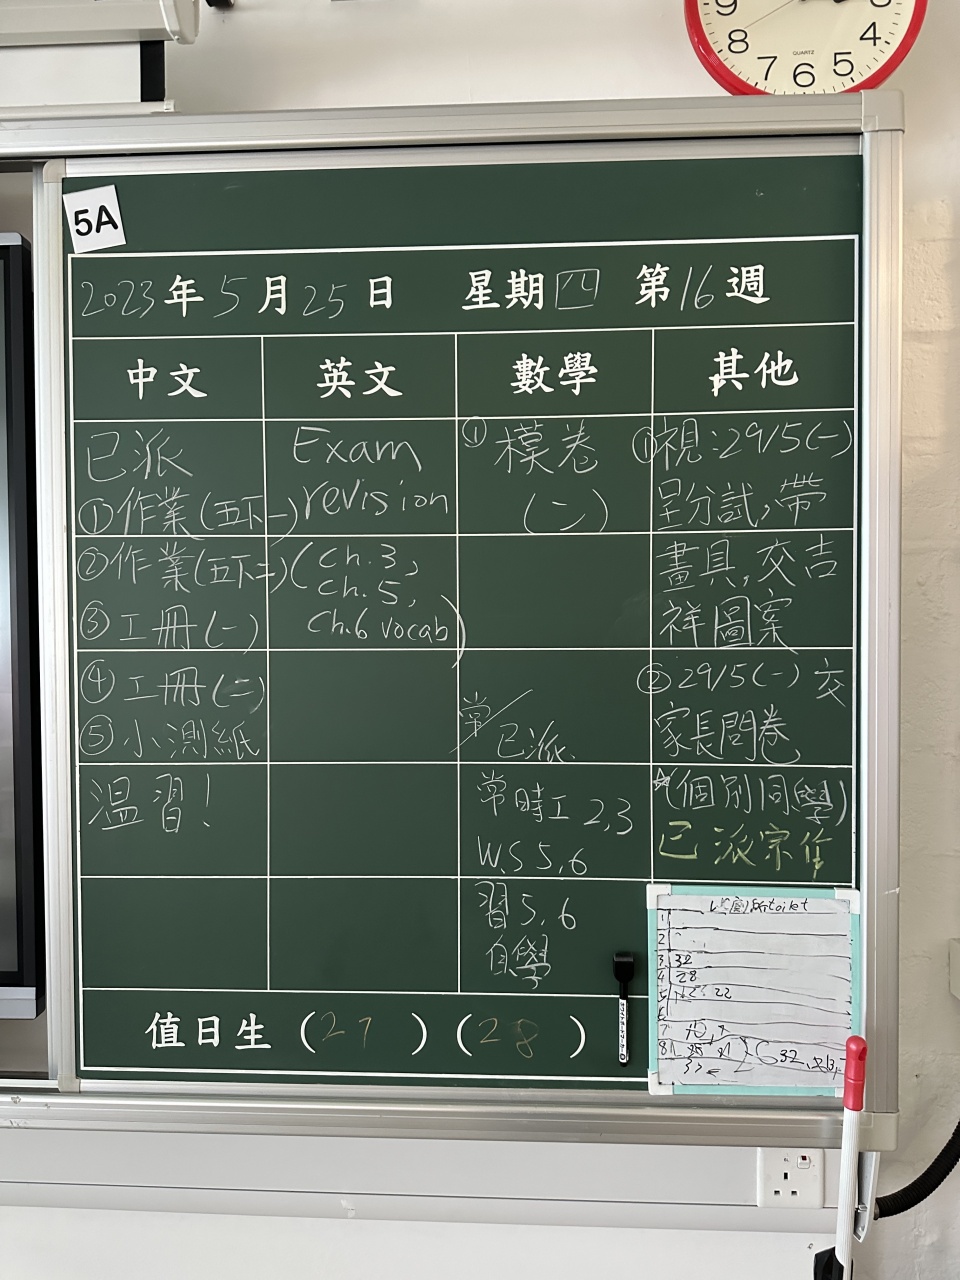 9
8
7
6
5
4
QUARTZ
5A
2023年5月25日 星期四 第16週
中文 英文 數學 其他
已派
①作業(五下一)
②作業(五下二)
③工冊(一)
④工冊(二)
⑤小測紙
溫習!
Exam
revision
(Ch.3,
Ch.5,
Ch.6 vocab)
①模卷
(二)
常
已派
常時工2,3
W.S 5,6
習5,6
自學
①視:29/5(一)
呈分試,帶
畫具,交吉
祥圖案
②29/5(一)交
家長問卷
☆(個別同學)
已派宗作
值日生(27)(28)
toilet
1
2
3 32
4 28
5 22
7
8